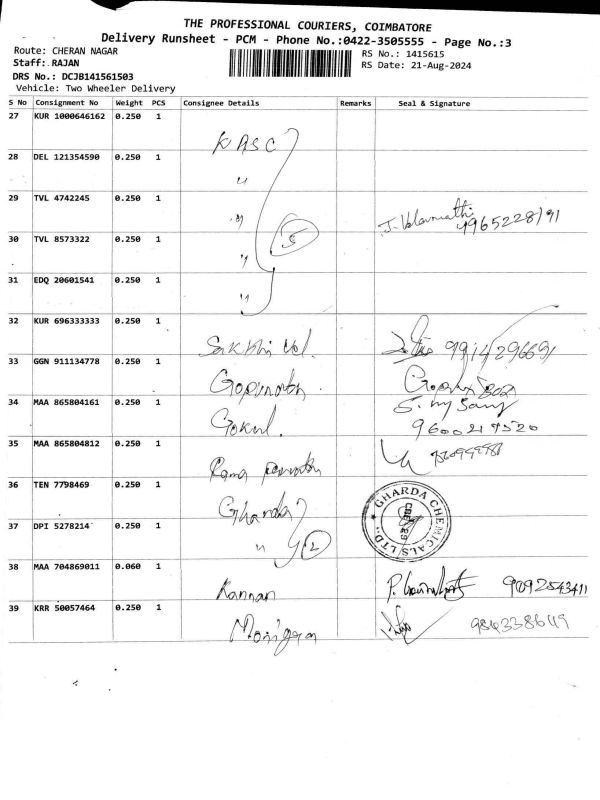 THE PROFESSIONAL COURIERS, COIMBATORE
Delivery Runsheet - PCM - Phone No.:0422-3505555 - Page No.:3
Route: CHERAN NAGAR
RS No.: 1415615
Staff: RAJAN
RS Date: 21-Aug-2024
DRS No.: DCJB141561503
Vehicle: Two Wheeler Delivery
S No Consignment No Weight PCS Consignee Details Remarks Seal & Signature
27 KUR 1000646162 0.250 1 KASC
28 DEL 121354590 0.250 1 "
29 TVL 4742245 0.250 1 "
30 TVL 8573322 0.250 1 " 5
31 EDQ 20601541 0.250 1 "
32 KUR 696333333 0.250 1
33 GGN 911134778 0.250 1 Gopinath
34 MAA 865804161 0.250 1 Gokul.
9600217520
35 MAA 865804812 0.250 1 Rama
36 TEN 7798469 0.250 1 Gharda
GHARDA CHEMICALS LTD.
37 DPI 5278214 0.250 1 " 2
38 MAA 704869011 0.060 1 Kannan 9092543411
39 KRR 50057464 0.250 1